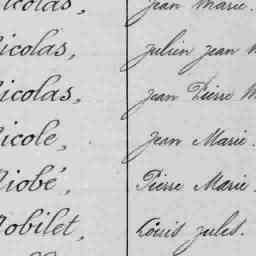 icolas, Jean Marie.
icolas, Julien Jean M
icolas, Jean Pierre M
icole, Jean Marie.
iobé, Pierre Marie.
obilet, Louis Jules.